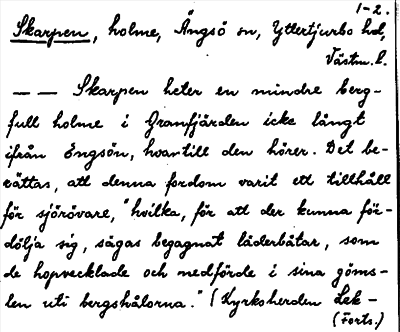 1-2.
Skarpen, holme, Ängsö sn, Yttertjurbo hd,
Västm. l.
— — Skarpen heter en mindre berg-
full holme i Granfjärden icke långt
ifrån Engsön, hvartill den hörer. Det be-
rättas, att denna fordom varit ett tillhåll
för sjörövare, "hvilka, för att der kunna för-
dölja sig, sägas begagnat läderbåtar, som
de hopvecklade och medförde i sina göms-
len uti bergshålorna." (Kyrkoherden Lek-
(Forts.)